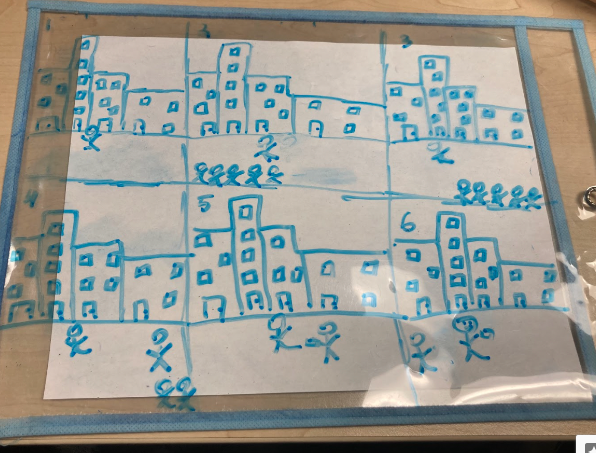 3
4
5
6